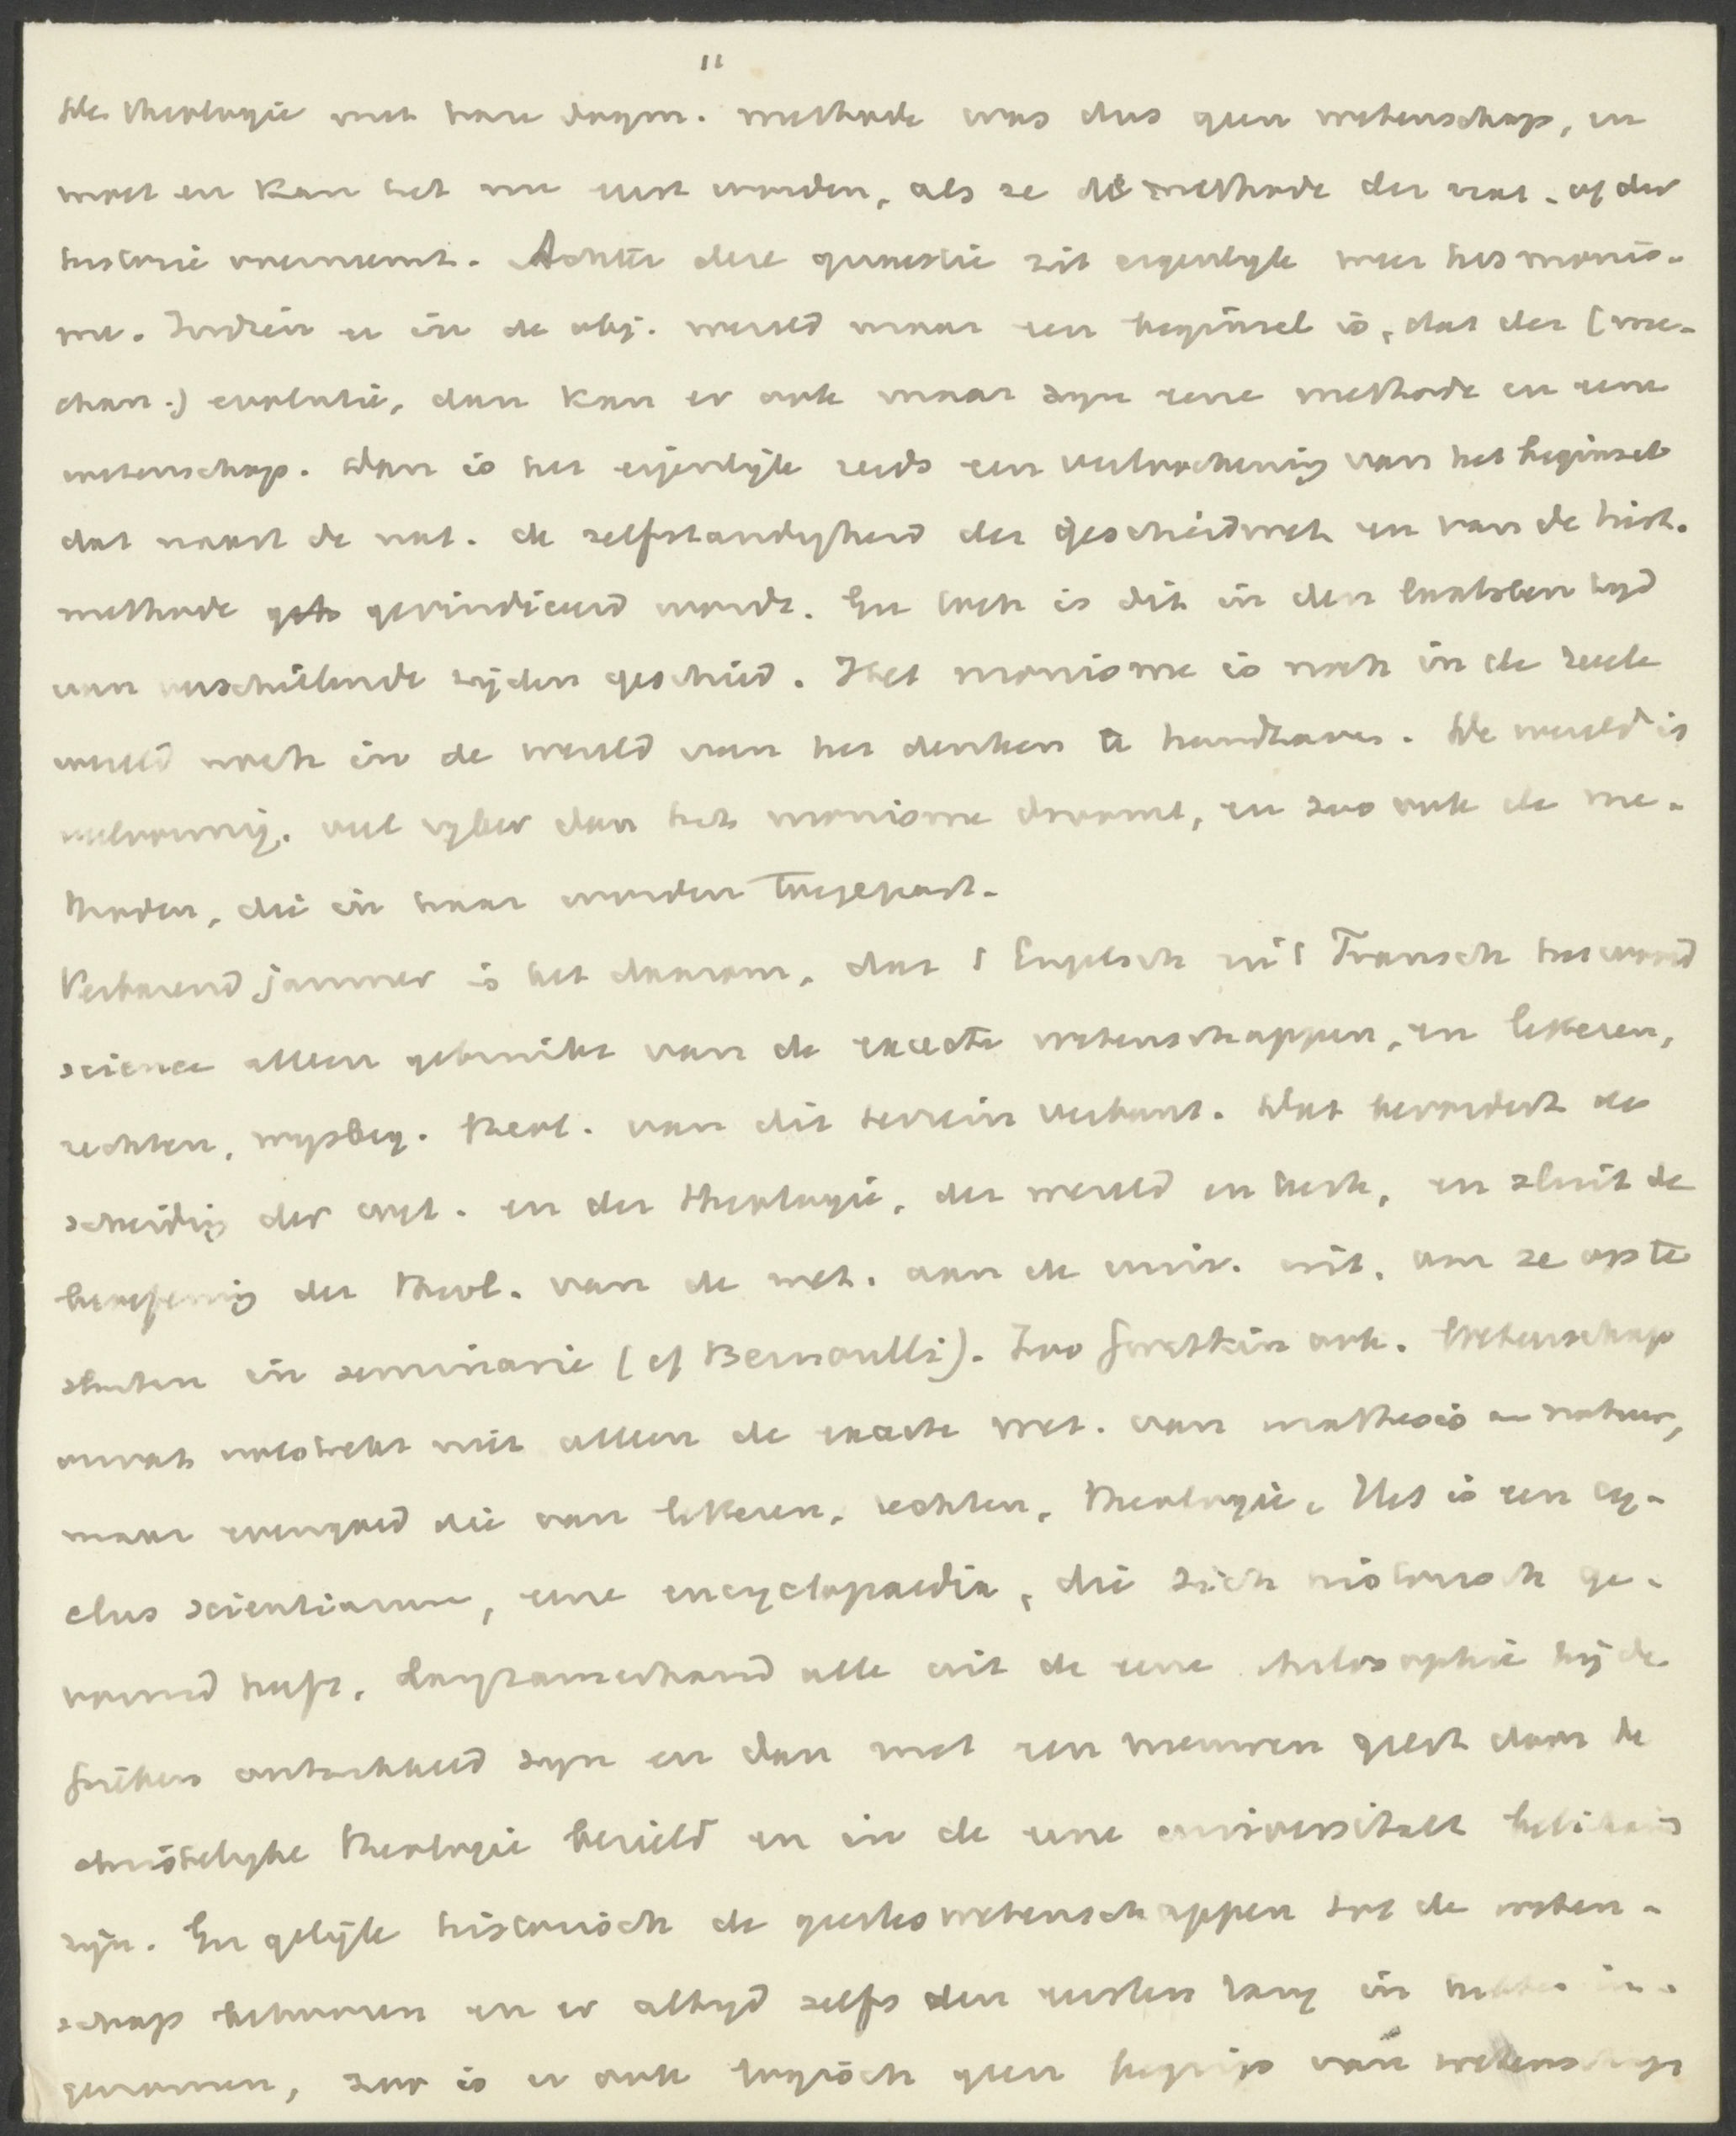 11
De theologie met hare dogm. methode was dus geen wetenschap, en
moet en kan het nu eerst worden, als ze de methode der nat. of der
historie overneemt. Achter deze quaestie zit eigenlyk weer het monis-
me. Indien er in de obj. wereld maar een beginsel is, dat der (me-
chan.) evolutie, dan kan er ook maar zyn eene methode en eene
wetenschap. Dan is het eigenlijk reeds een verloochening van het beginsel
dat naast de nat. de zelfstandigheid der geschiedwet. en van de hist.
methode gevindiceerd wordt. En toch is dit in den laatsten tyd
van verschillende zijden geschied. Het monisme is noch in de reele
wereld noch in de wereld van het denken te handhaven. De wereld is
veelvormig, veel ryker dan het monisme droomt, en zoo ook de me-
thoden, die in haar worden toegepast.
Verbazend jammer is het daarom, dat 't Engelsch en 't Fransch het woord
science alleen gebruikt van de exacte wetenschappen, en letteren,
rechten, wysbeg. theol. van dit terrein verbant. Dat bevordert de
scheiding der wet. en der theologie, der wereld en kerk, en sluit de
beoefening der theol. van de wet. aan de univ. uit, om ze op te
sluiten in seminarie (cf Bernoulli). Zoo Groethuis ook. Wetenschap
omvat volstrekt niet alleen de exacte wet. van mathesis en natuur,
maar evengoed die van letteren, rechten, theologie. Het is een cy-
clus scientiarum, eene encyclopaedia, die zich historisch ge-
vormd heeft, langzamerhand alle uit de eene philosophie bij de
Grieken ontwikkeld zyn en dan met een nieuwen geest door de
christelyke theologie bezield en in de eene universitatt
zijn. En gelijk historisch de geesteswetenschappen tot de weten-
schap behooren en er altyd zelfs den eersten rang in hebben in-
genomen, zoo is er ook logisch geen begrip van wetenschap